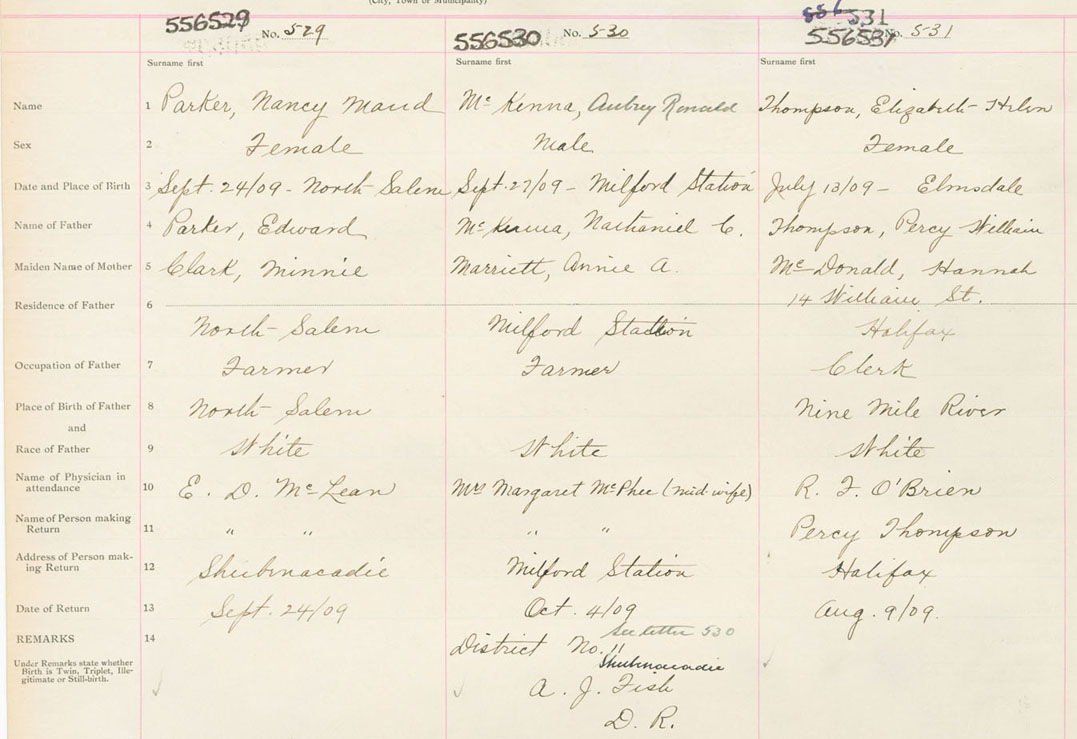 (City, Town or Municipality)
556529 No. 529 556530 No. 530 556531 556531 No. 531
Surname first Surname first Surname first
Name 1 Parker, Nancy Maud McKenna, Aubrey Ronald Thompson, Elizabeth Helen
Sex 2 Female Male Female
Date and Place of Birth 3 Sept. 24/09 - North Salem Sept. 27/09 - Milford Station July 13/09 - Elmsdale
Name of Father 4 Parker, Edward McKenna, Nathaniel C. Thompson, Percy William
Maiden Name of Mother 5 Clark, Minnie Marriett, Annie A. McDonald, Hannah
14 William St.
Residence of Father 6 North Salem Milford Station Halifax
Occupation of Father 7 Farmer Farmer Clerk
Place of Birth of Father 8 North Salem Nine Mile River
and
Race of Father 9 White White White
Name of Physician in
attendance 10 E. D. McLean Mrs Margaret McPhee (mid-wife) R. F. O'Brien
Name of Person making
Return 11 " " " " Percy Thompson
Address of Person mak-
ing Return 12 Shubenacadie Milford Station Halifax
Date of Return 13 Sept. 24/09 Oct. 4/09 Aug. 9/09.
REMARKS 14 See letter 530
District No. 11
Under Remarks state whether
Birth is Twin, Triplet, Ille-
gitimate or Still-birth.
Shubenacadie
A. J. Fish
D. R.